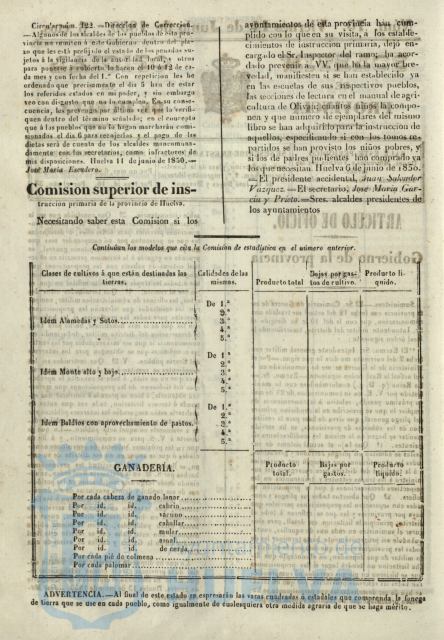 Circular núm. 122.—Direccion de Correccion.
—Algunos de los alcaldes de los pueblos de esta pro-
vincia no remiten á este Gobierno dentro del pla-
zo que les está prefijado el estado de los penados su-
jetos á la vigilancia de la autoridad local, y otros
para ponerse á cubierto lo hacen 10 ó 12 de ca-
da mes y con fecha del 1.º Con repeticion les he
ordenado que precisamente el dia 5 han de estar
los referidos estados en mi poder, y sin embargo
veo con disgusto que no lo cumplen. En su conse-
cuencia, les prevengo por última vez que lo verifi-
quen dentro del término señalado; en el concepto
que á los pueblos que no lo hagan marcharán comi-
sionados el dia 6 para recojerlos, y el pago de las
dietas será de cuenta de los alcaldes mancomuna-
damente con los secretarios, como infractores de
mis disposiciones. Huelva 11 de junio de 1850.—
José Maria Escudero.
Comision superior de ins-
truccion primaria de la provincia de Huelva.
Necesitando saber esta Comision si los
ayuntamientos de esta provincia han cum-
plido con lo que en su visita, á los estable-
cimientos de instruccion primaria, dejó en-
cargado el Sr. Inspector del ramo; ha acor-
dado prevenir á VV. que á la mayor bre-
vedad, manifiesten si se han establecido ya
en las escuelas de sus respectivos pueblos,
las secciones de lectura en el manual de agri-
cultura de Olivan; cuántos niños la compo-
nen y que número de ejemplares del mismo
libro se han adquirido para la instruccion de
aquellos, especificando si con los fondos re-
partidos se han provisto los niños pobres, y
si los de padres pudientes han comprado ya
los que necesitan. Huelva 6 de junio de 1850.
—El presidente accidental, Juan Salvador
Vazquez.—El secretario, José Maria Gar-
cía y Prieto.—Sres. alcaldes presidentes de
los ayuntamientos
Continúan los modelos que cita la Comision de estadística en el número anterior.
Clases de cultivos á que están destinadas las tierras.
Calidades de las mismas.
Producto total
Bajas por gas-
tos de cultivo.
Producto lí-
quido.
De 1.ª
2.ª
Idem Alamedas y Sotos
3.ª
4.ª
5.ª
De 1.ª
2.ª
Idem Monte alto y bajo
3.ª
4.ª
5.ª
De 1.ª
2.ª
Idem Baldíos con aprovechamiento de pastos.
3.ª
4.ª
5.ª
GANADERÍA.
Producto total.
Bajas por gastos.
Producto líquido.
Por cada cabeza de ganado lanar
Por id. id. id. cabrío
Por id. id. id. vacuno
Por id. id. id. caballar
Por id. id. id. mular
Por id. id. id. asnal
Por id. id. id. de cerda
Por cada pié de colmena
Por cada palomar
ADVERTENCIA.—Al final de este estado se espresarán las varas cuadradas ó estadales que comprenda la fanega
de tierra que se use en cada pueblo, como igualmente de cualesquiera otra medida agraria de que se haga mérito.
Ayuntamiento de
HUELVA